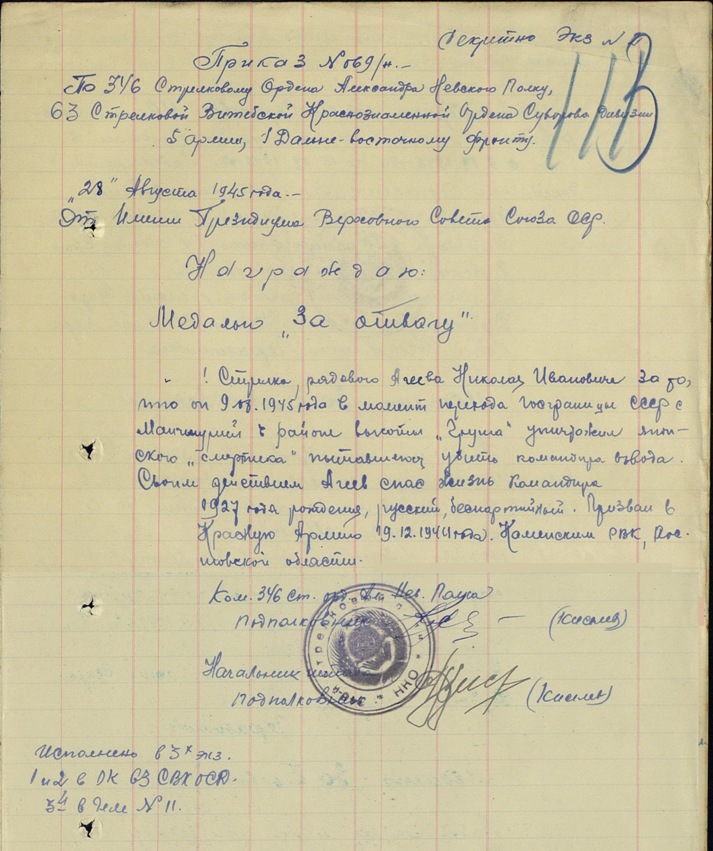 Секретно Экз №
113
Приказ № 069/н.-
По 346 Стрелковому Ордена Александра Невского Полку,
63 Стрелковой Витебской Краснознаменной Ордена Суворова Дивизии
5 армии, 1 Дальне-восточному фронту.
"28" Августа 1945 года.-
От Имени Президиума Верховного Совета Союза ССР.
Награждаю:
Медалью "За отвагу".
1 Стрелка, рядового Агеева Николая Ивановича за то,
что он 9.08.1945 года в момент перехода Госграницы СССР с
Манчжурией в районе высоты "Груша" уничтожил япон-
ского "смертника" пытавшегося убить командира взвода.
Своим действием Агеев спас жизнь Командира
1927 года рождения, русский, беспартийный. Призван в
Красную Армию 19.12.1944 года. Каменским РВК, Рос-
товской области.
Ком. 346 Ст. орд. Ал. Нев. Полка
Подполковник
Начальник штаба
Подполковник
Исполнено в 3х экз.
1 и 2 в ОК 63 СВКОСД.
3й в деле № 11.